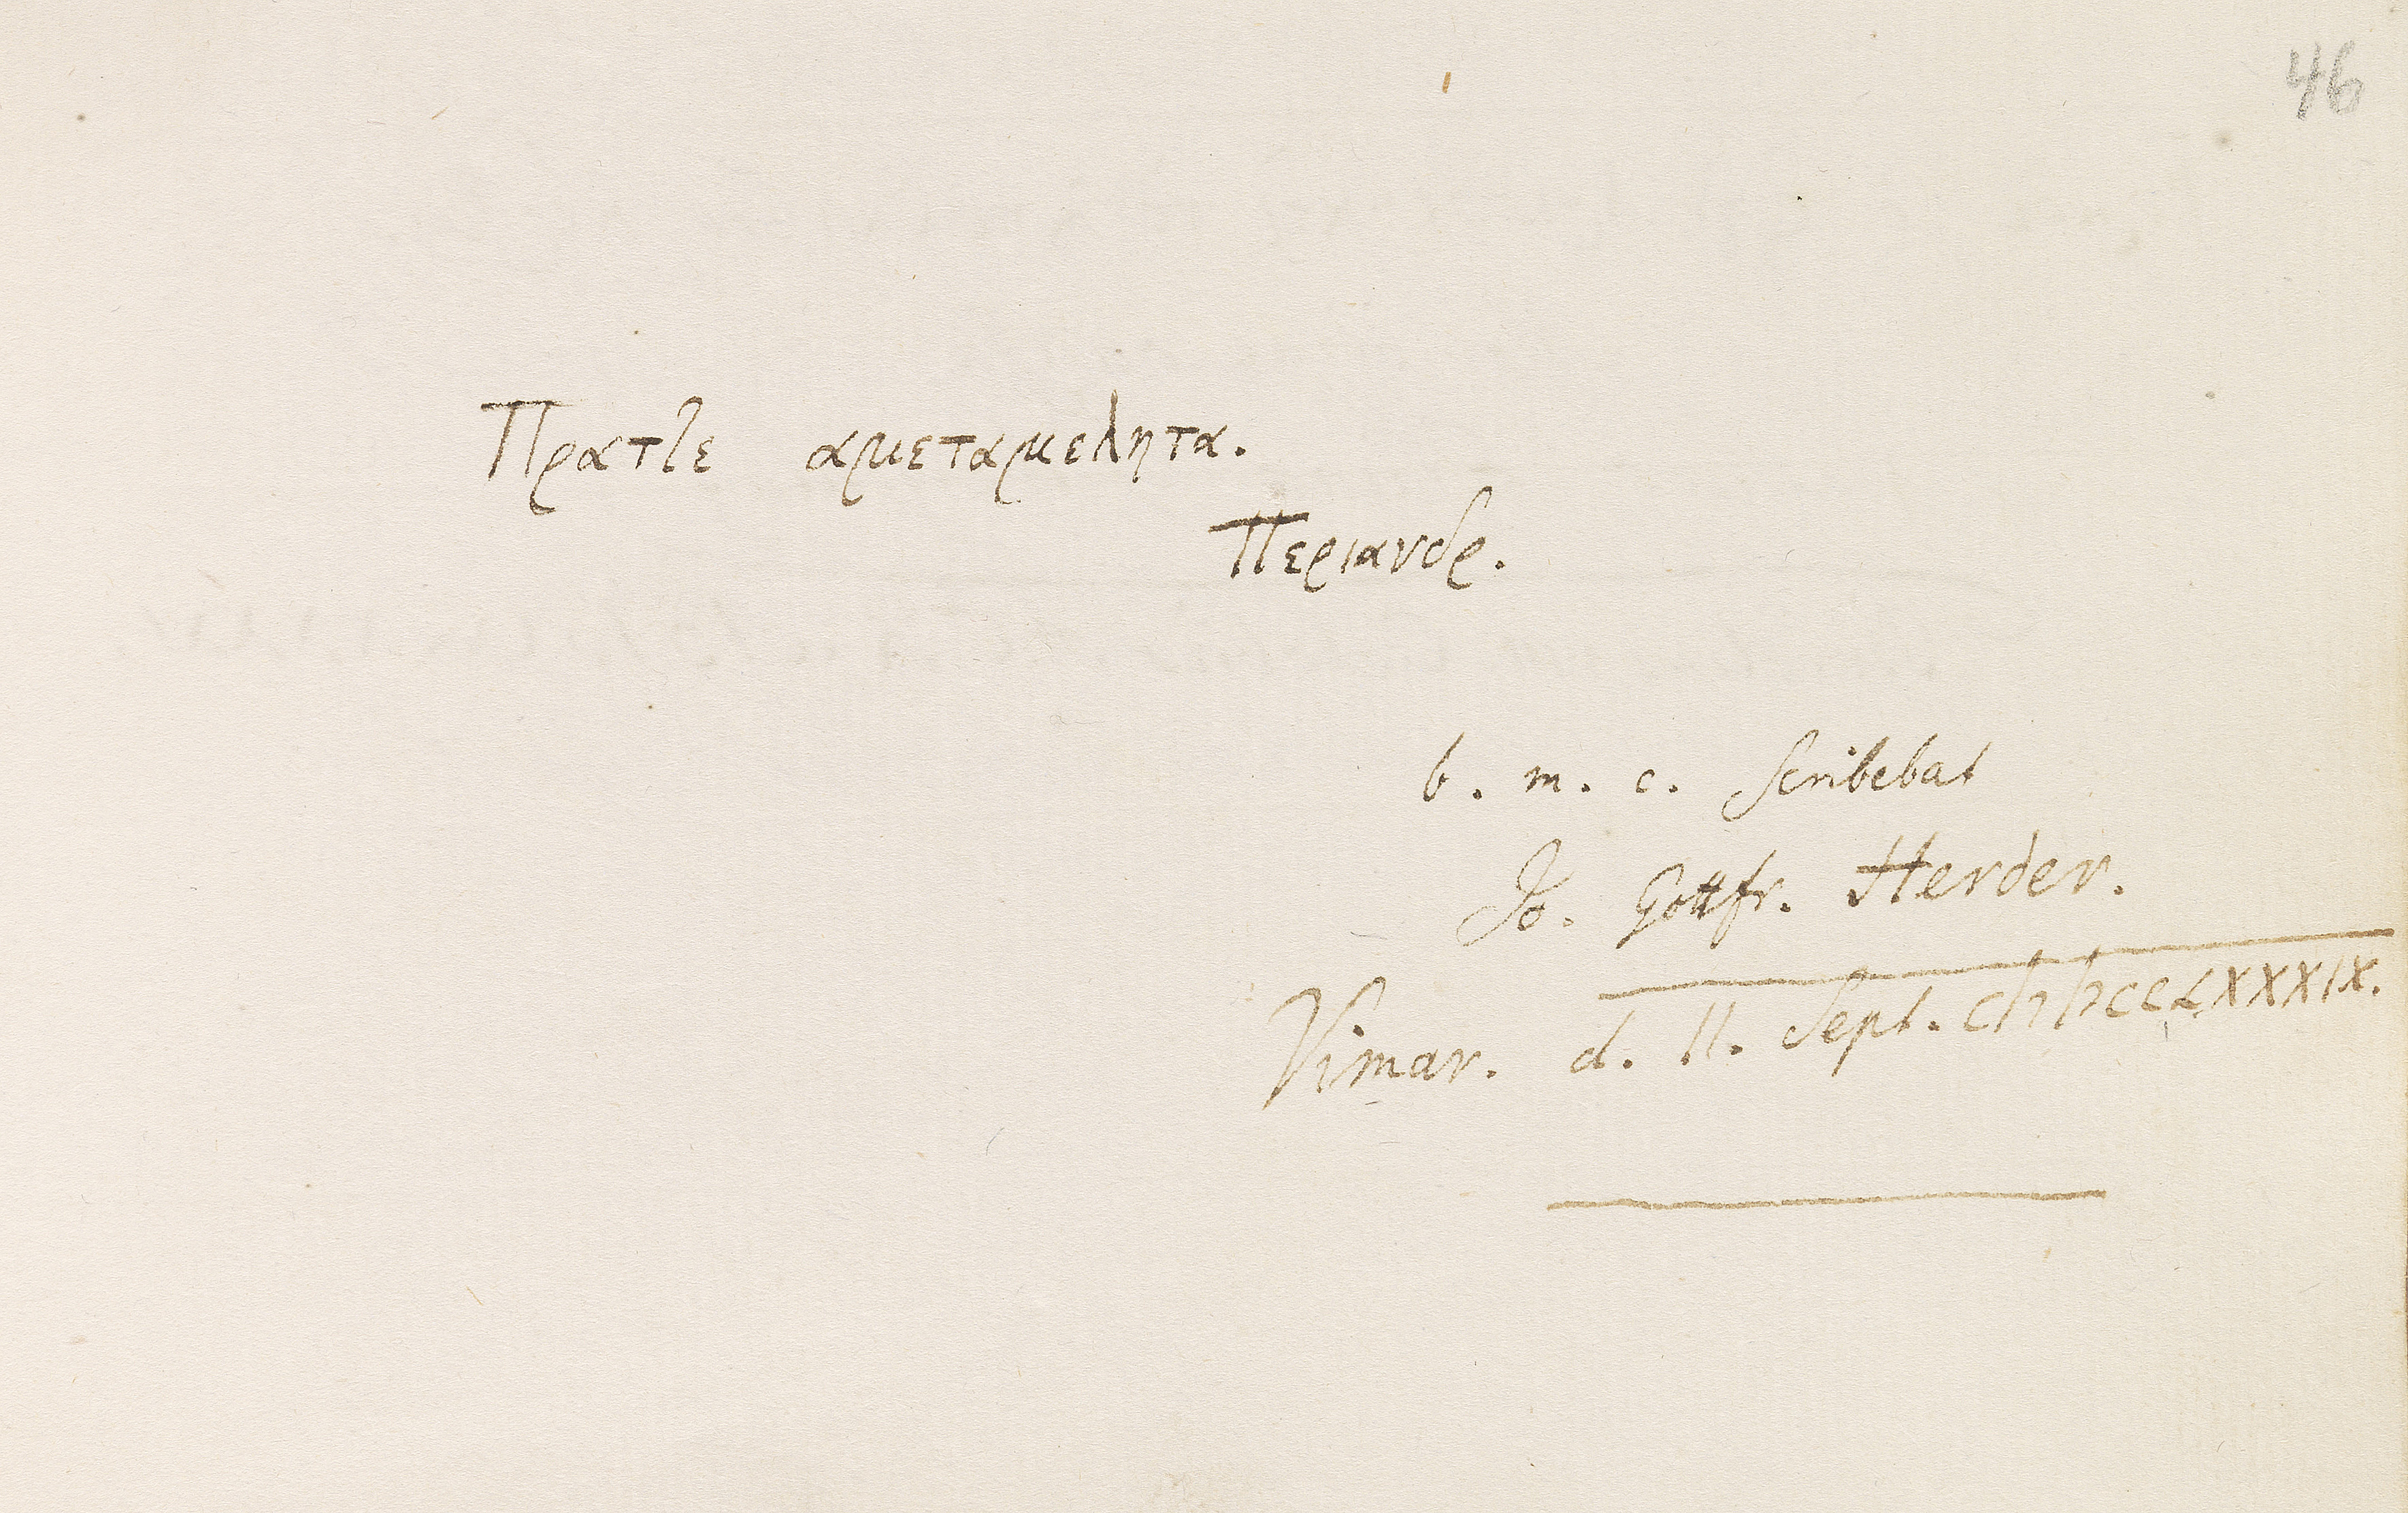 46
Πραττε αμεταμελητα.
Περιανδρ.
b. m. c. scribebat
Jo. Gottfr. Herder.
Vimar. d. 11. Sept. CIƆIƆCCLXXXIX.